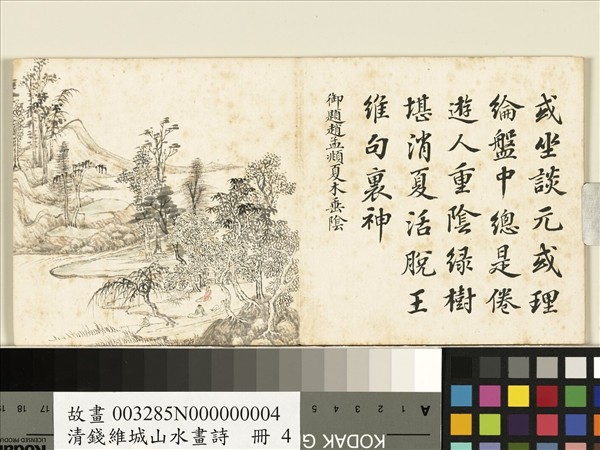 或坐談元或理
綸盤中總是倦
遊人重陰綠樹
堪消夏活脫王
維句裏神
御題趙孟頫夏木垂陰
故畫 003285N000000004
清錢維城山水畫詩 冊 4
KODAK G
A 1 2 3 4 5
17 18 19